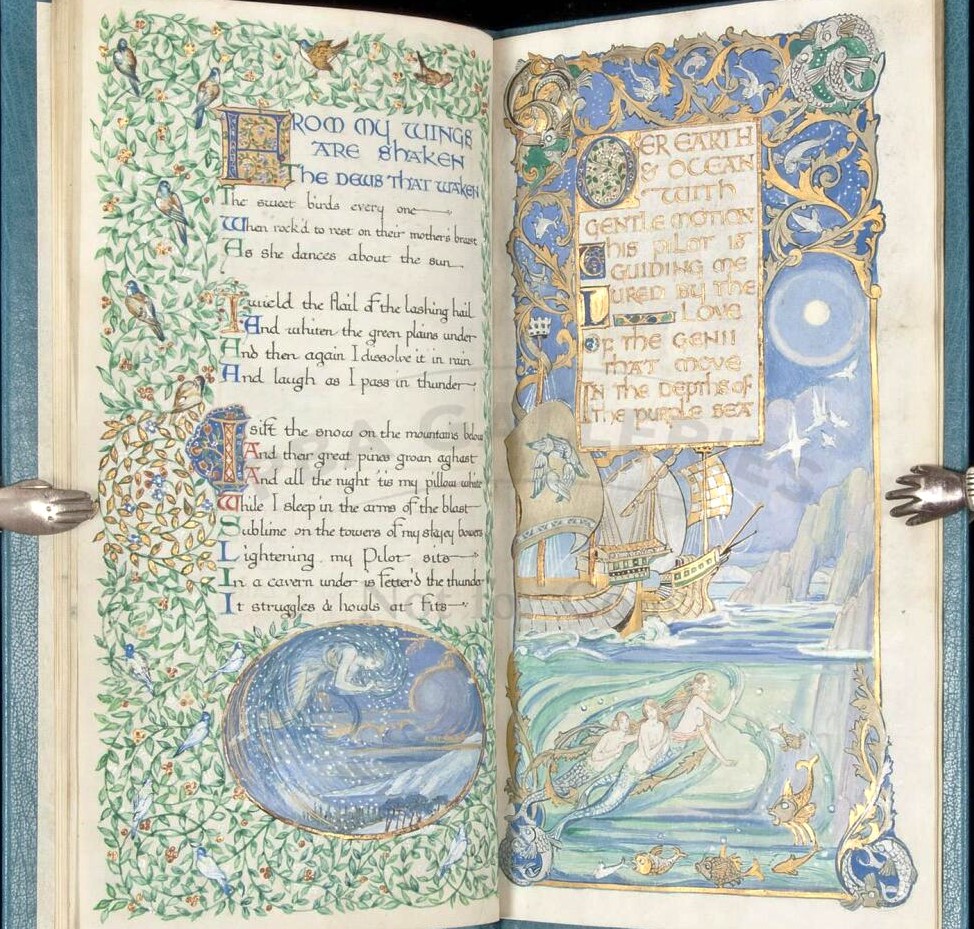 FROM MY WINGS
ARE SHAKEN
THE DEWS THAT WAKEN
The sweet birds every one
When rock'd to rest on their mother's breast
As she dances about the sun
I wield the flail of the lashing hail
And whiten the green plains under
And then again I dissolve it in rain
And laugh as I pass in thunder
I sift the snow on the mountains below
And their great pines groan aghast
And all the night 'tis my pillow white
While I sleep in the arms of the blast
Sublime on the towers of my skyey bowers
Lightening my Pilot sits
In a cavern under is fetter'd the thunder
It struggles & howls at fits
OVER EARTH
& OCEAN
WITH
GENTLE MOTION
This PILOT IS
GUIDING ME
LURED BY THE
LOVE
OF THE GENII
THAT MOVE
IN THE DEPTHS OF
THE PURPLE SEA
GALLERIES
Not for